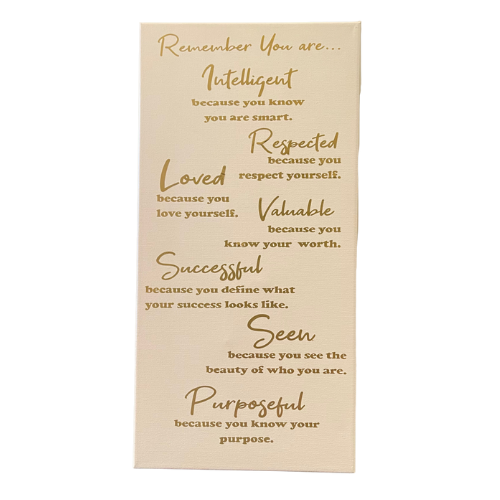 Remember You are...
Intelligent
because you know
you are smart.
Respected
because you
respect yourself.
Loved
because you
love yourself.
Valuable
because you
know your worth.
Successful
because you define what
your success looks like.
Seen
because you see the
beauty of who you are.
Purposeful
because you know your
purpose.